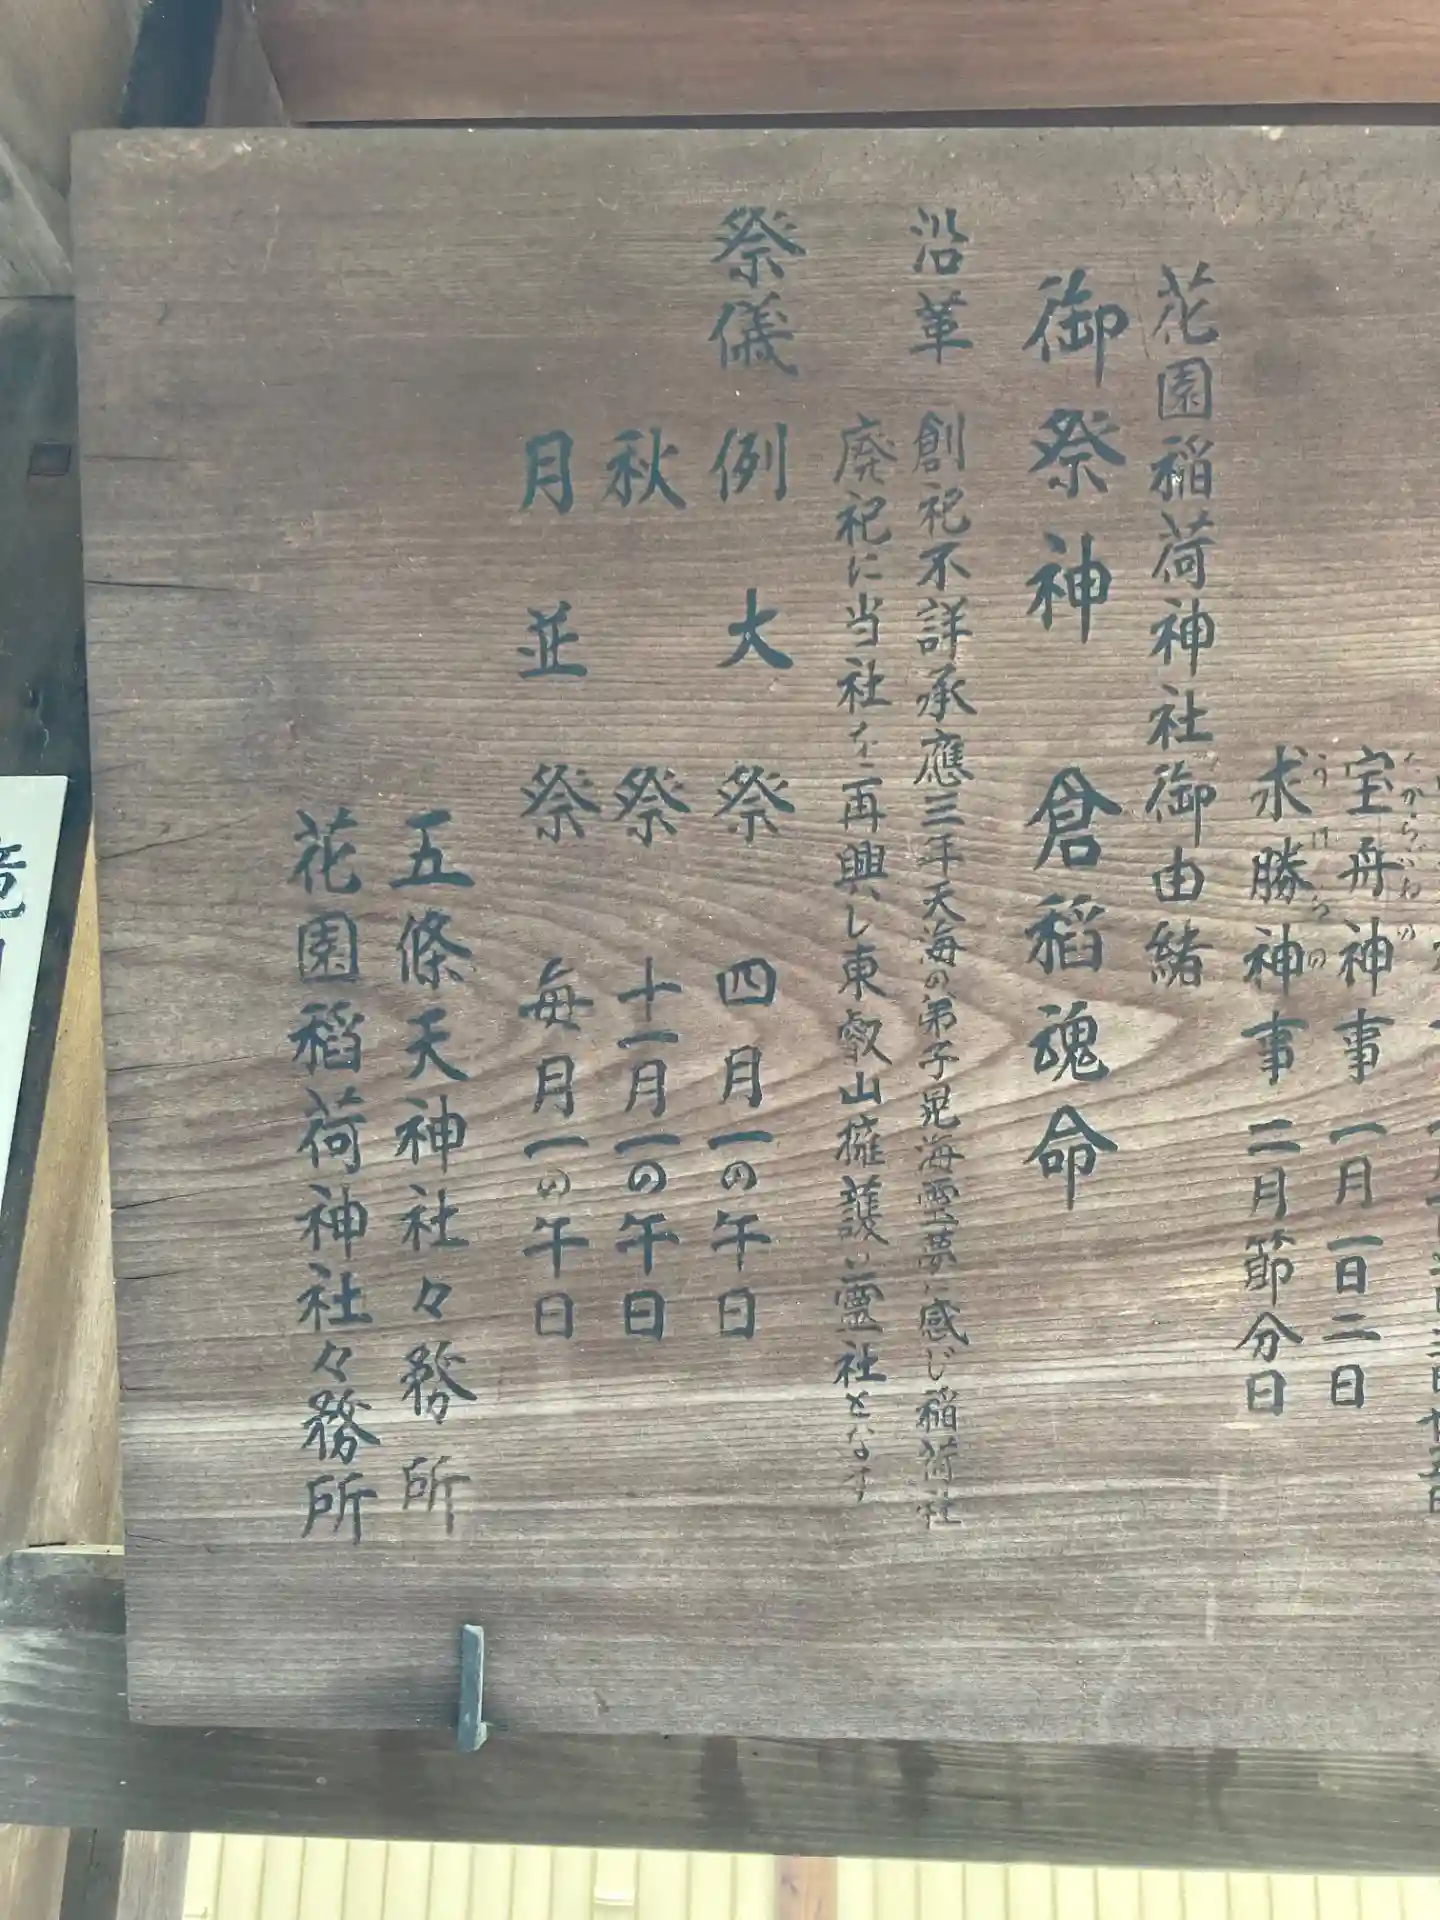 宝舟神事 一月一日二日
たからぶねの
求勝神事 二月節分日
うけらの
花園稲荷神社御由緒
御祭神 倉稲魂命
沿革 創祀不詳承應三年天海の弟子晃海霊夢に感じ稲荷社
廃祀に当社を再興し東叡山擁護の靈社となす
祭儀 例大祭 四月一の午日
秋祭 十一月一の午日
月並祭 毎月一の午日
五條天神社々務所
花園稲荷神社々務所